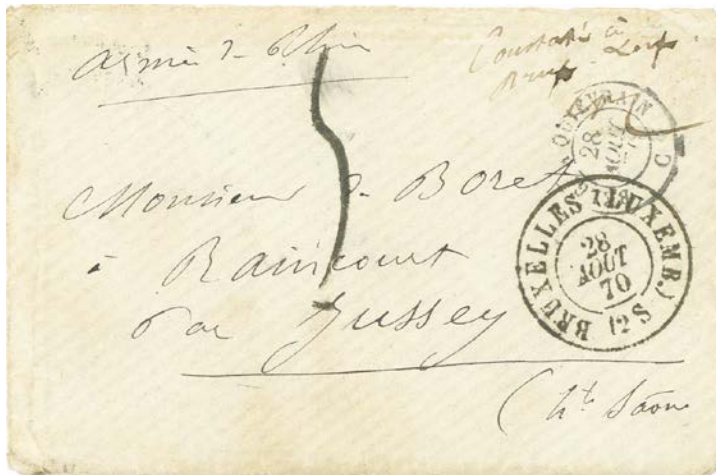 Armée du Rhin
Constaté à
5
QUIÉVRAIN
28
AOUT
Monsieur de Boret
à Raincourt
par Jussey
(Hte Saône
BRUXELLES (LUXEMB.)
28
AOUT
70
12 S